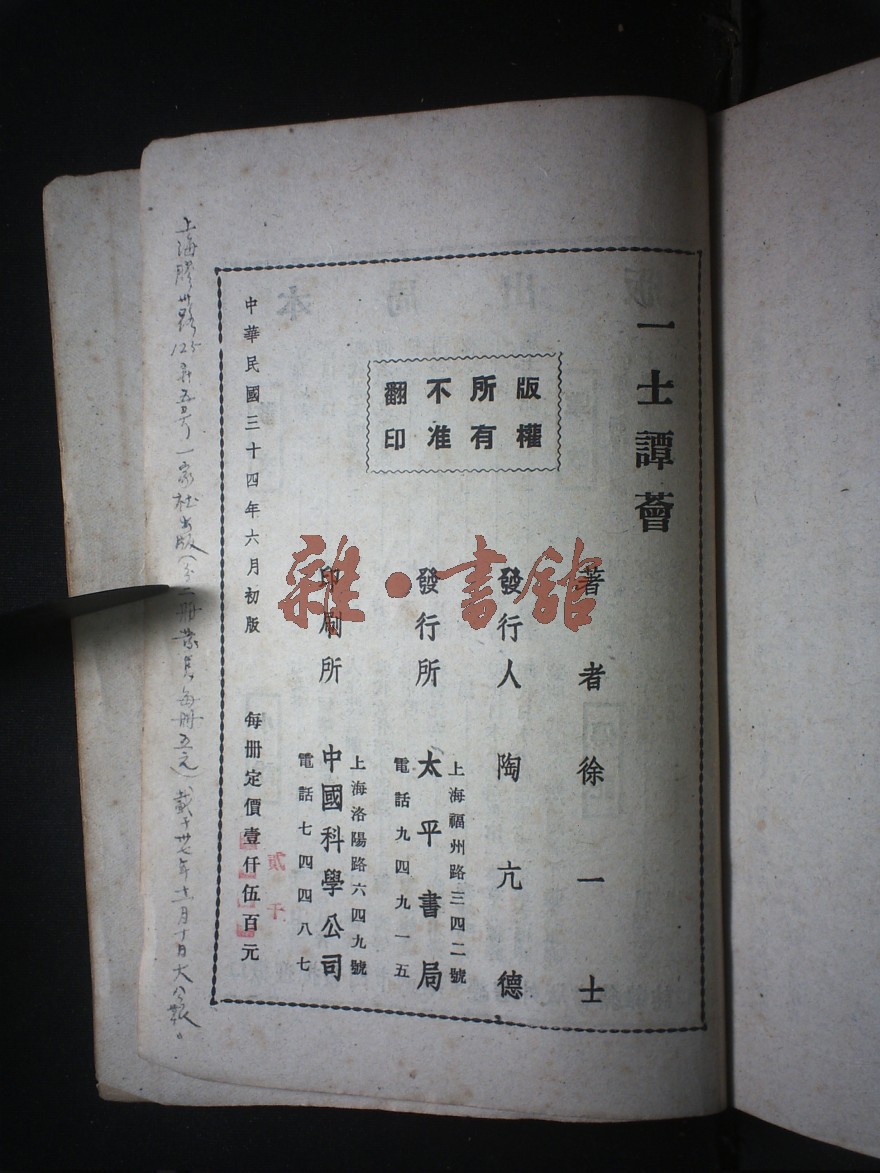 一士譚薈
版權
所有
不准
翻印
著者徐一士
發行人陶亢德
上海福州路三四二號
發行所太平書局
電話九四九一五
上海洛陽路六四九號
印刷所中國科學公司
電話七四四八七
中華民國三十四年六月初版
每冊定價壹仟伍百元
上海膠州路125弄五號一家社出版(分二冊裝每冊五元)載于卅七年十一月十日大公報。
雜·書館